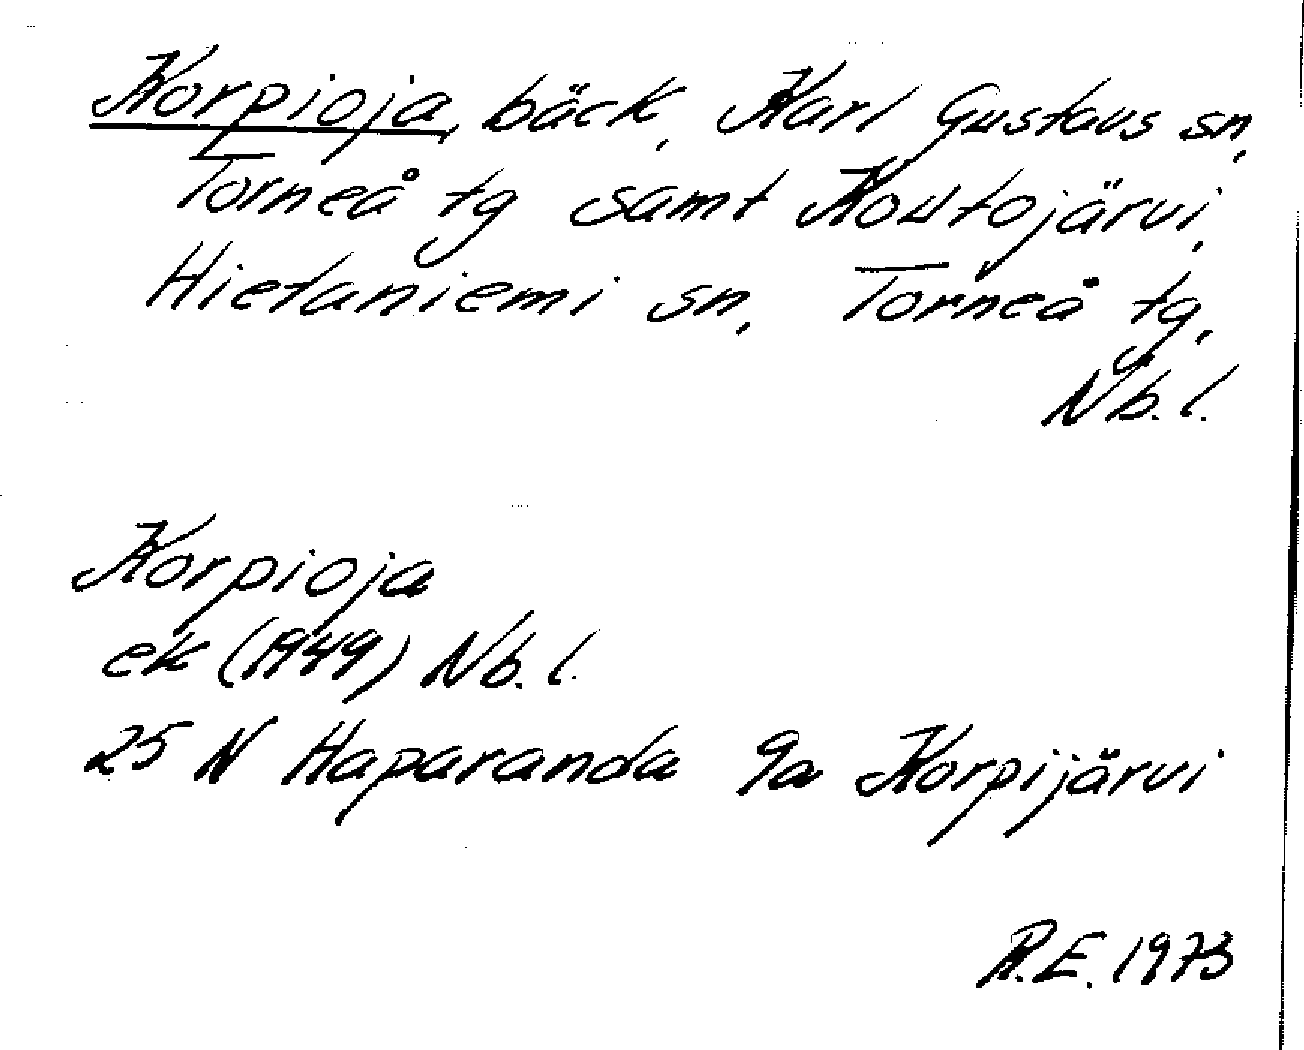 Korpioja, bäck, Karl Gustavs sn,
Torneå tg samt Koutojärvi,
Hietaniemi sn, Torneå tg,
Nb.l.
Korpioja
ek (1949) Nb.l.
25 N Haparanda 9a Korpijärvi
R.E. 1973